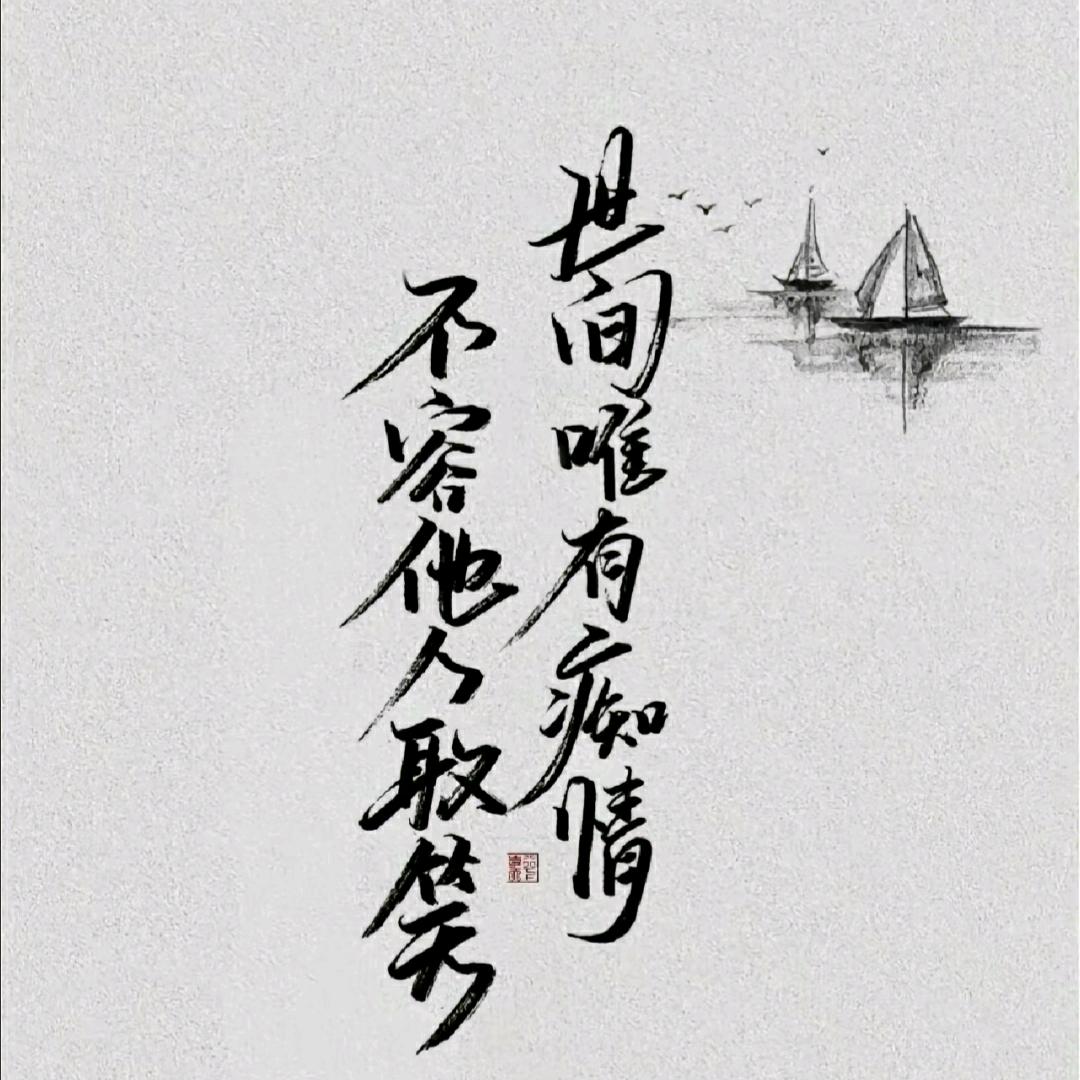 世间唯有痴情
不容他人取笑